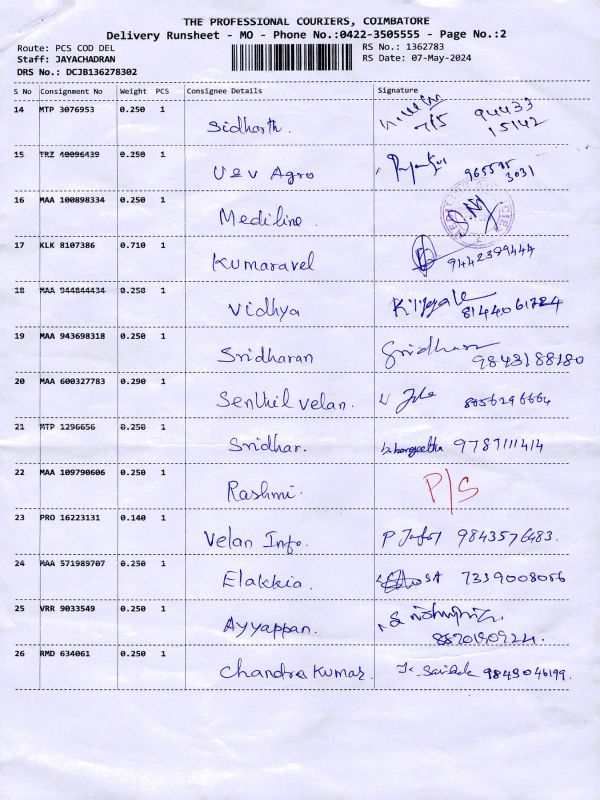 THE PROFESSIONAL COURIERS, COIMBATORE
Delivery Runsheet - MO - Phone No.:0422-3505555 - Page No.:2
Route: PCS COD DEL RS No.: 1362783
Staff: JAYACHADRAN RS Date: 07-May-2024
DRS No.: DCJB136278302
S No Consignment No Weight PCS Consignee Details Signature
14 MTP 3076953 0.250 1 Sidharth. 7/5 94433 15142
15 TRZ 40096439 0.250 1 U&V Agro 3031
16 MAA 100898334 0.250 1 Mediline
17 KLK 8107386 0.710 1 Kumaravel 9442399444
18 MAA 944844434 0.250 1 Vidhya 8144061724
19 MAA 943698318 0.250 1 Sridharan Sridharan 9843188180
20 MAA 600327783 0.290 1 Senthil velan. 8056296664
21 MTP 1296656 0.250 1 Sridhar. 9787111414
22 MAA 109790606 0.250 1 Rashmi. P/S
23 PRO 16223131 0.140 1 Velan Info. 9843576483.
24 MAA 571989707 0.250 1 Elakkia. 7339008056
25 VRR 9033549 0.250 1 Ayyappan.
26 RMD 634061 0.250 1 Chandra kumar. 9843046199.